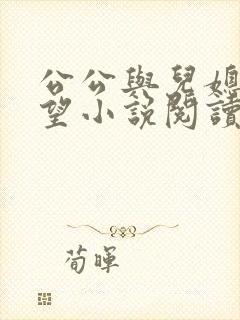 公公與兒媳
望小說閱讀
荀暉